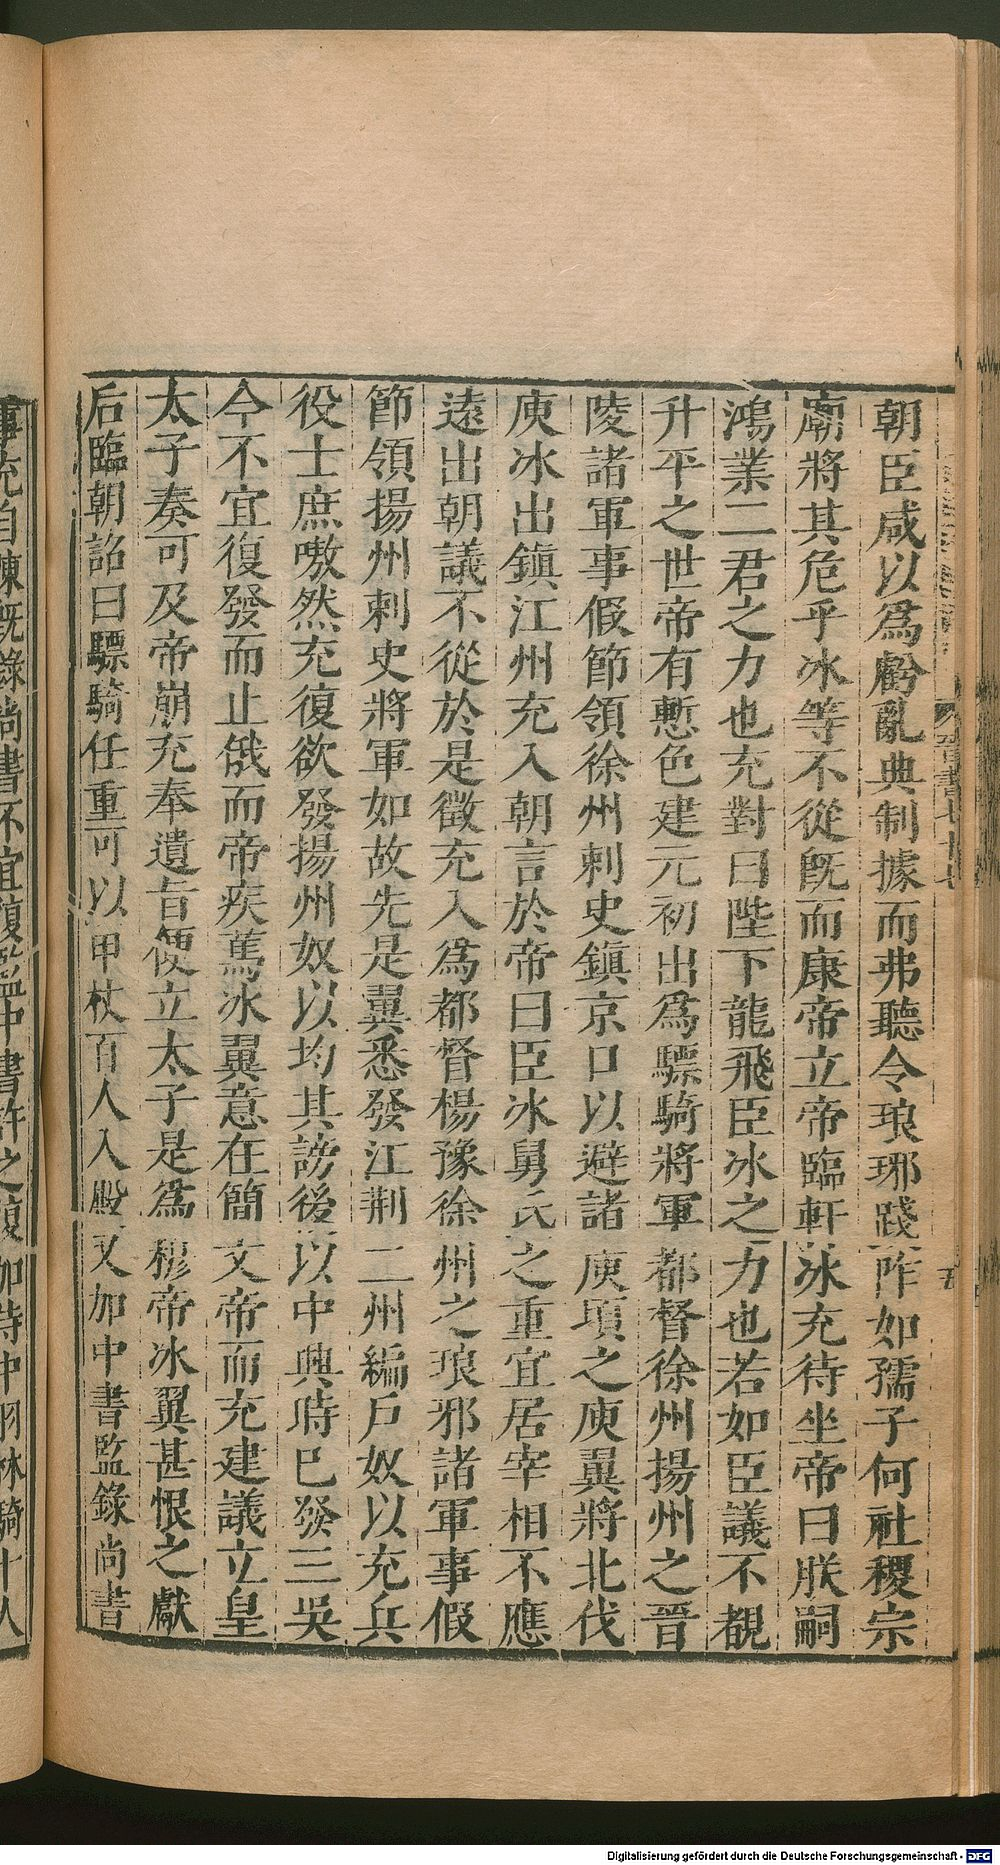 朝臣咸以爲虧亂典制據而弗聽令琅琊踐阼如孺子何社稷宗
廟將其危乎冰等不從旣而康帝立帝臨軒冰充待坐帝曰朕嗣
鴻業二君之力也充對曰陛下龍飛臣冰之力也若如臣議不覩
升平之世帝有慙色建元初出爲驃騎將軍都督徐州揚州之晉
陵諸軍事假節領徐州刺史鎭京口以避諸庾項之庾翼將北伐
庾冰出鎭江州充入朝言於帝曰臣冰舅氏之重宜居宰相不應
遠出朝議不從於是徵充入爲都督楊豫徐州之琅邪諸軍事假
節領揚州刺史將軍如故先是翼悉發江荆二州編戶奴以充兵
役士庶嗷然充復欲發揚州奴以均其謗後以中興時已發三吳
今不宜復發而止俄而帝疾篤冰翼意在簡文帝而充建議立皇
太子奏可及帝崩充奉遺旨便立太子是爲穆帝冰翼甚恨之獻
后臨朝詔曰驃騎任重可以甲杖百人入殿又加中書監錄尚書
事充自陳旣錄尚書不宜復監中書許之復加侍中羽林騎十人
晉書七十七
五
Digitalisierung gefördert durch die Deutsche Forschungsgemeinschaft - DFG